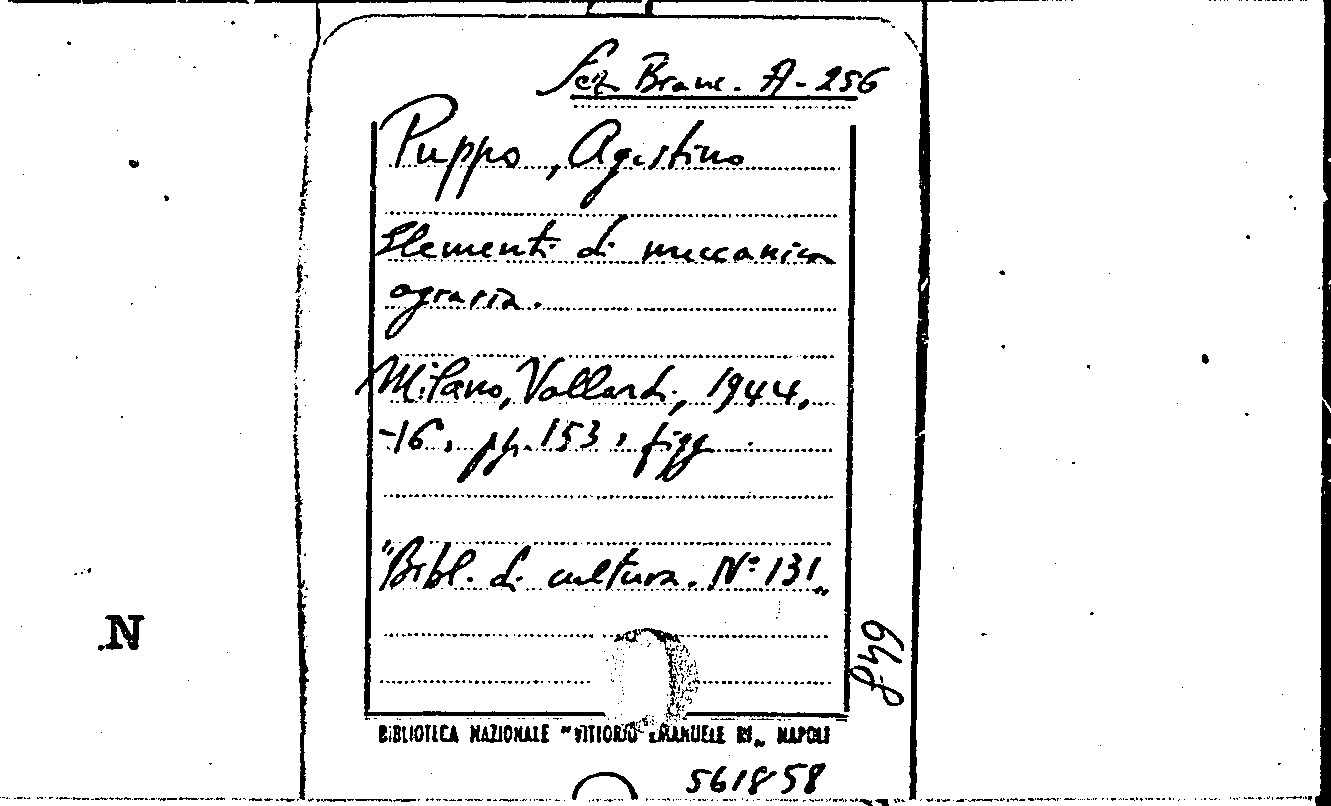 Sez. Branc. A-256
Puppo, Agostino
Elementi di meccanica
agraria.
Milano, Vallardi, 1944,
-16, pp. 153, figg.
"Bibl. di cultura. Nº 131"
BIBLIOTECA NAZIONALE "VITTORIO EMANUELE III" NAPOLI
561858
.N